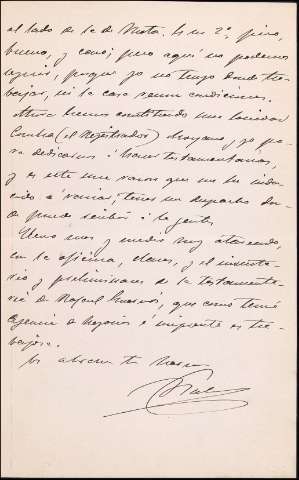 al lado de la de Mota. Es un 2º piso,
bueno, y caro; pero aquí no podemos
seguir, porque yo no tengo donde tra-
bajar, ni la casa reune condiciones.
Ahora hemos constituido una sociedad
(el Registrador) Moyano, y yo pa-
ra dedicarnos á hacer testamentarias,
y es este una razon que me ha indu-
cido á variar; tener un despacho don-
de pueda recibir á la gente.
Llevo mes y medio muy atareado,
con la oficina, clases, y el inventa-
rio y preliminares de la testamenta-
ria de Rafael, que como tenia
Agencia de Negocios é imprenta es tra-
bajosa.
Os abraza tu